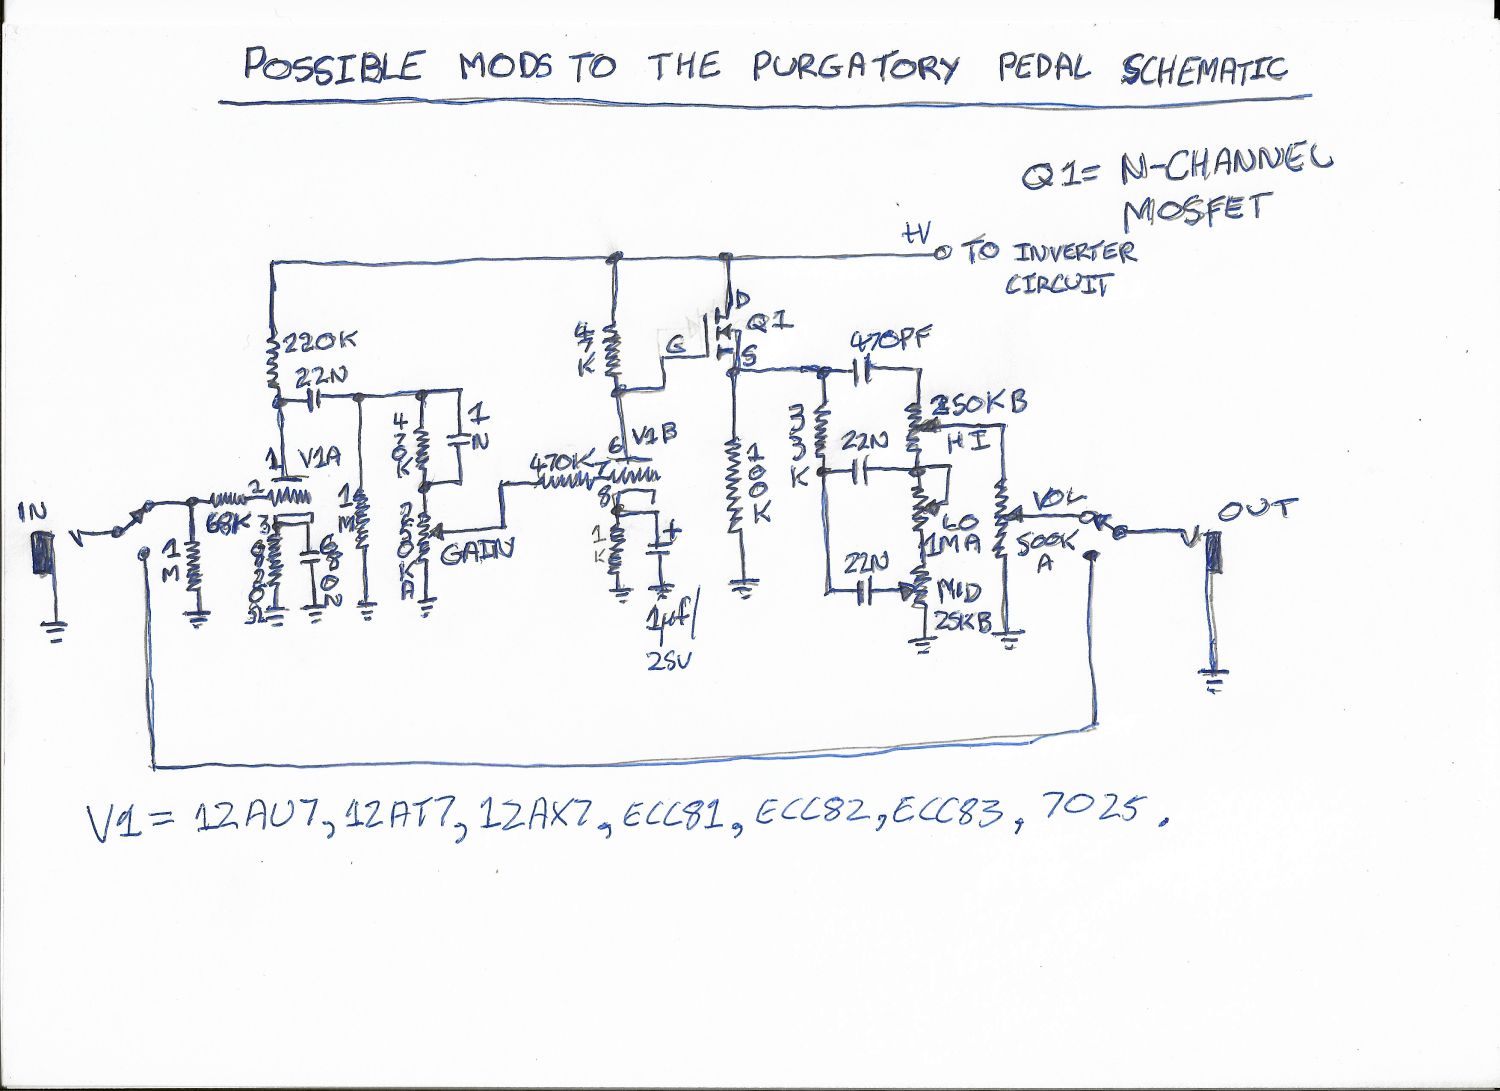 POSSIBLE MODS TO THE PURGATORY PEDAL SCHEMATIC
Q1= N-CHANNEL
MOSFET
+V
TO INVERTER
CIRCUIT
220K
22N
47K
G
D
Q1
S
470PF
250KB
HI
470K
1N
1
V1A
6
V1B
470K
7
33K
22N
100K
IN
2
68K
1M
3
820Ω
680N
1M
250KA
GAIN
8
1K
+
1µf/
25V
LO
1MA
22N
MID
25KB
VOL
500K
A
OUT
V1= 12AU7, 12AT7, 12AX7, ECC81, ECC82, ECC83, 7025.